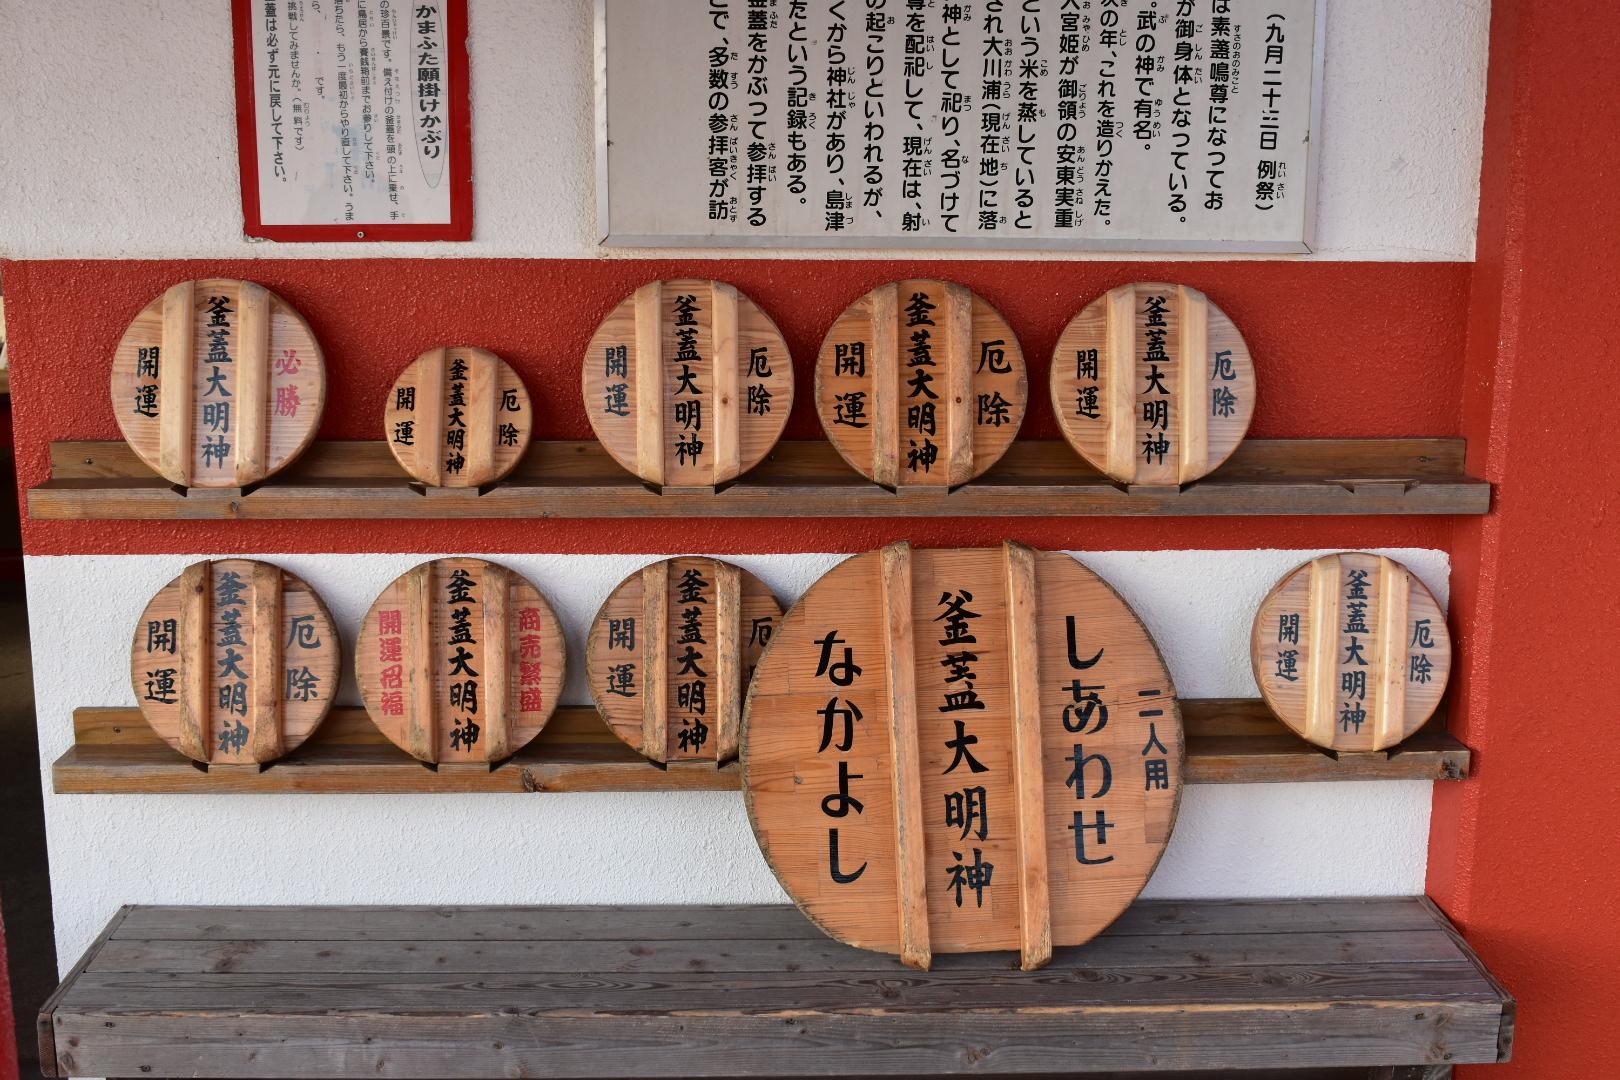 かまふた願掛けかぶり
の珍百景です。備え付けの釜蓋を頭の上に乗せ、手
に鳥居から賽銭箱前までお参りして下さい。
落ちたら、もう一度最初からやり直して下さい。うま
ら、
です。
挑戦してみませんか。(無料です)
蓋は必ず元に戻して下さい。
(九月二十三日 例祭)
は素盞嗚尊になつてお
が御身体となつている。
。武の神で有名。
次の年、これを造りかえた。
大宮姫が御領の安東実重
という米を蒸していると
され大川浦(現在地)に落
神として祀り、名づけて
尊を配祀して、現在は、射
の起こりといわれるが、
くから神社があり、島津
たという記録もある。
釜蓋をかぶつて参拝する
こで、多数の参拝客が訪
必勝
釜蓋大明神
開運
厄除
釜蓋大明神
開運
厄除
釜蓋大明神
開運
厄除
釜蓋大明神
開運
厄除
釜蓋大明神
開運
厄除
釜蓋大明神
開運
商売繁盛
釜蓋大明神
開運招福
厄除
釜蓋大明神
開運
二人用
しあわせ
釜蓋大明神
なかよし
厄除
釜蓋大明神
開運